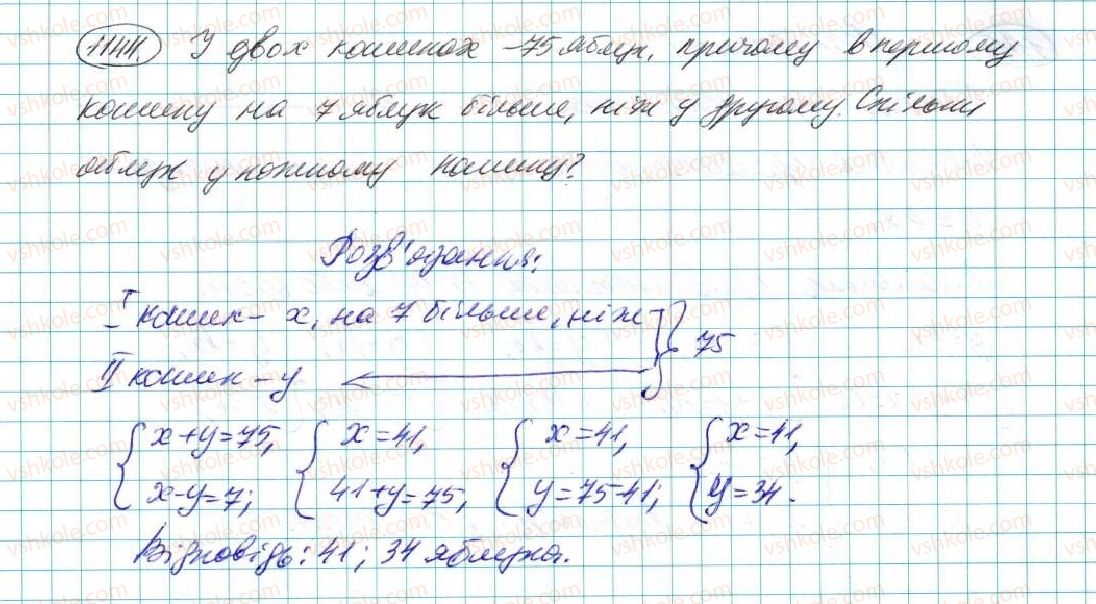 1144. У двох кошиках - 75 яблук, причому в першому
кошику на 7 яблук більше, ніж у другому. Скільки
яблук у кожному кошику?
Розв'язання:
I кошик - x, на 7 більше, ніж } 75
II кошик - y
{ x+y=75, { x=41, { x=41, { x=41,
x-y=7; 41+y=75, y=75-41; y=34.
Відповідь: 41; 34 яблука.